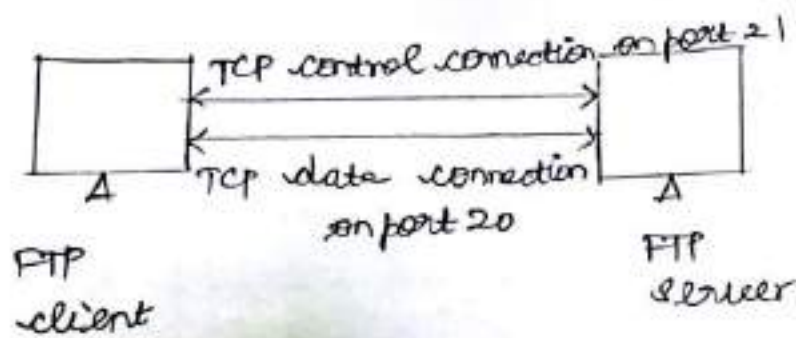 TCP control connection on port 21
TCP data connection
on port 20
FTP
client
FTP
server